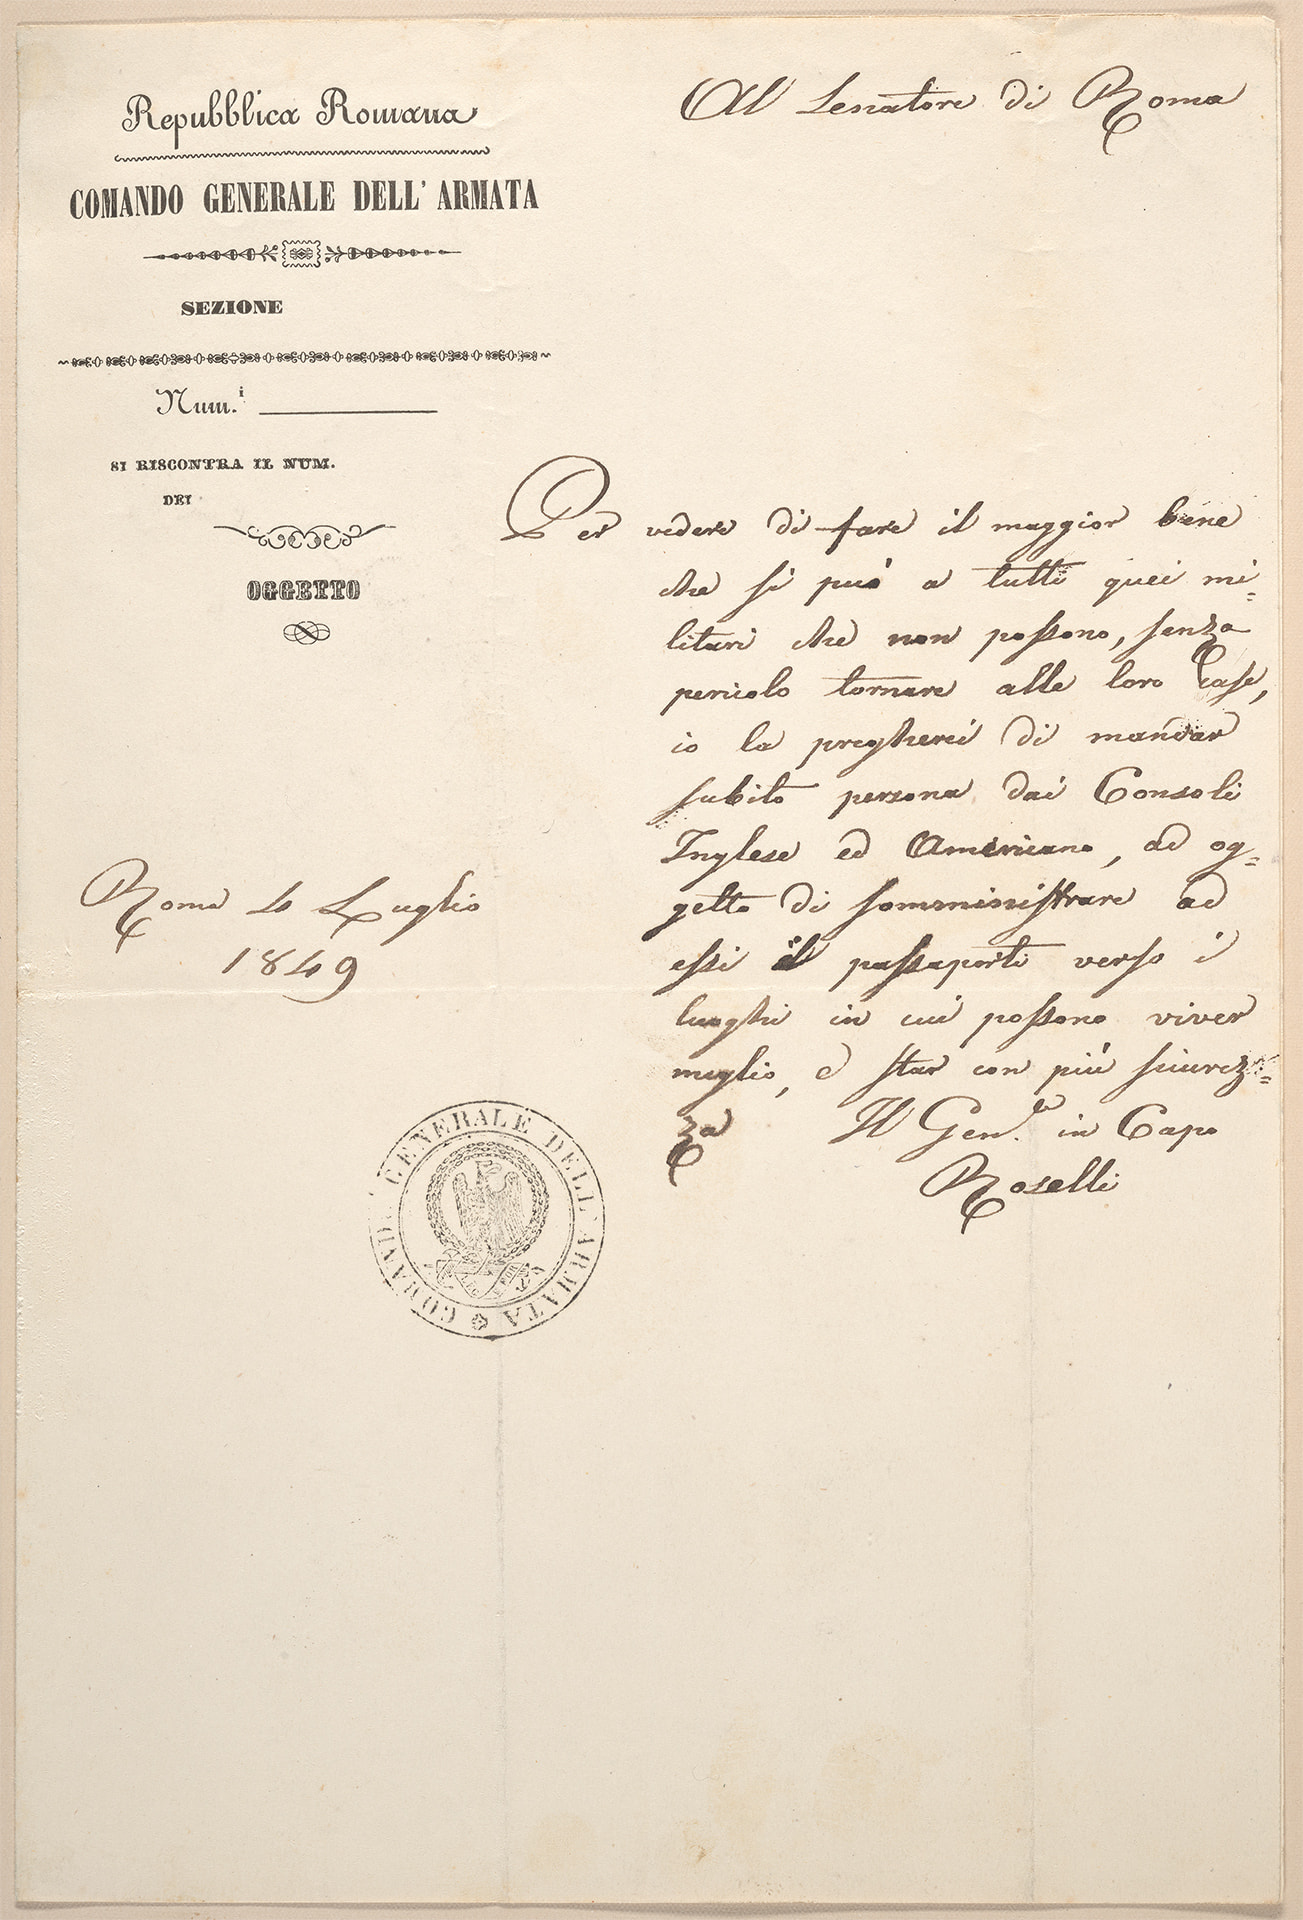 Repubblica Romana
COMANDO GENERALE DELL' ARMATA
SEZIONE
Num.i
SI RISCONTRA IL NUM.
DEI
OGGETTO
Al Senatore di Roma
Per vedere di fare il maggior bene
che si può a tutti quei mi=
litari che non possono, senza
pericolo tornare alle loro case,
io la pregherei di mandar
subito persona dai Consoli
Inglese ed Americano, ad og=
getto di somministrare ad
essi il passaporti verso i
luoghi in cui possono viver
meglio, e star con più sicurez=
za Il Gen.le in Capo
Roselli
Roma 4 Luglio
1849
COMANDO GENERALE DELL' ARMATA